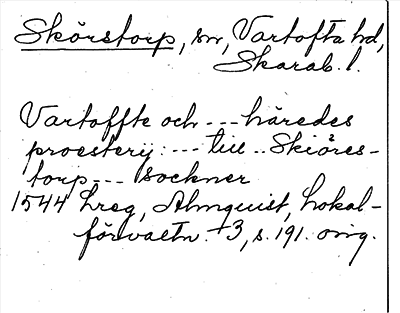 Skörstorp, sn, Vartofta hd,
Skarab. l.
Vartoffte och --- häredes
proestery: --- till .. Skiöres-
torp --- sockner
1544 Lreg, Almquist, Lokal-
förvaltn. +3, s. 191. orig.